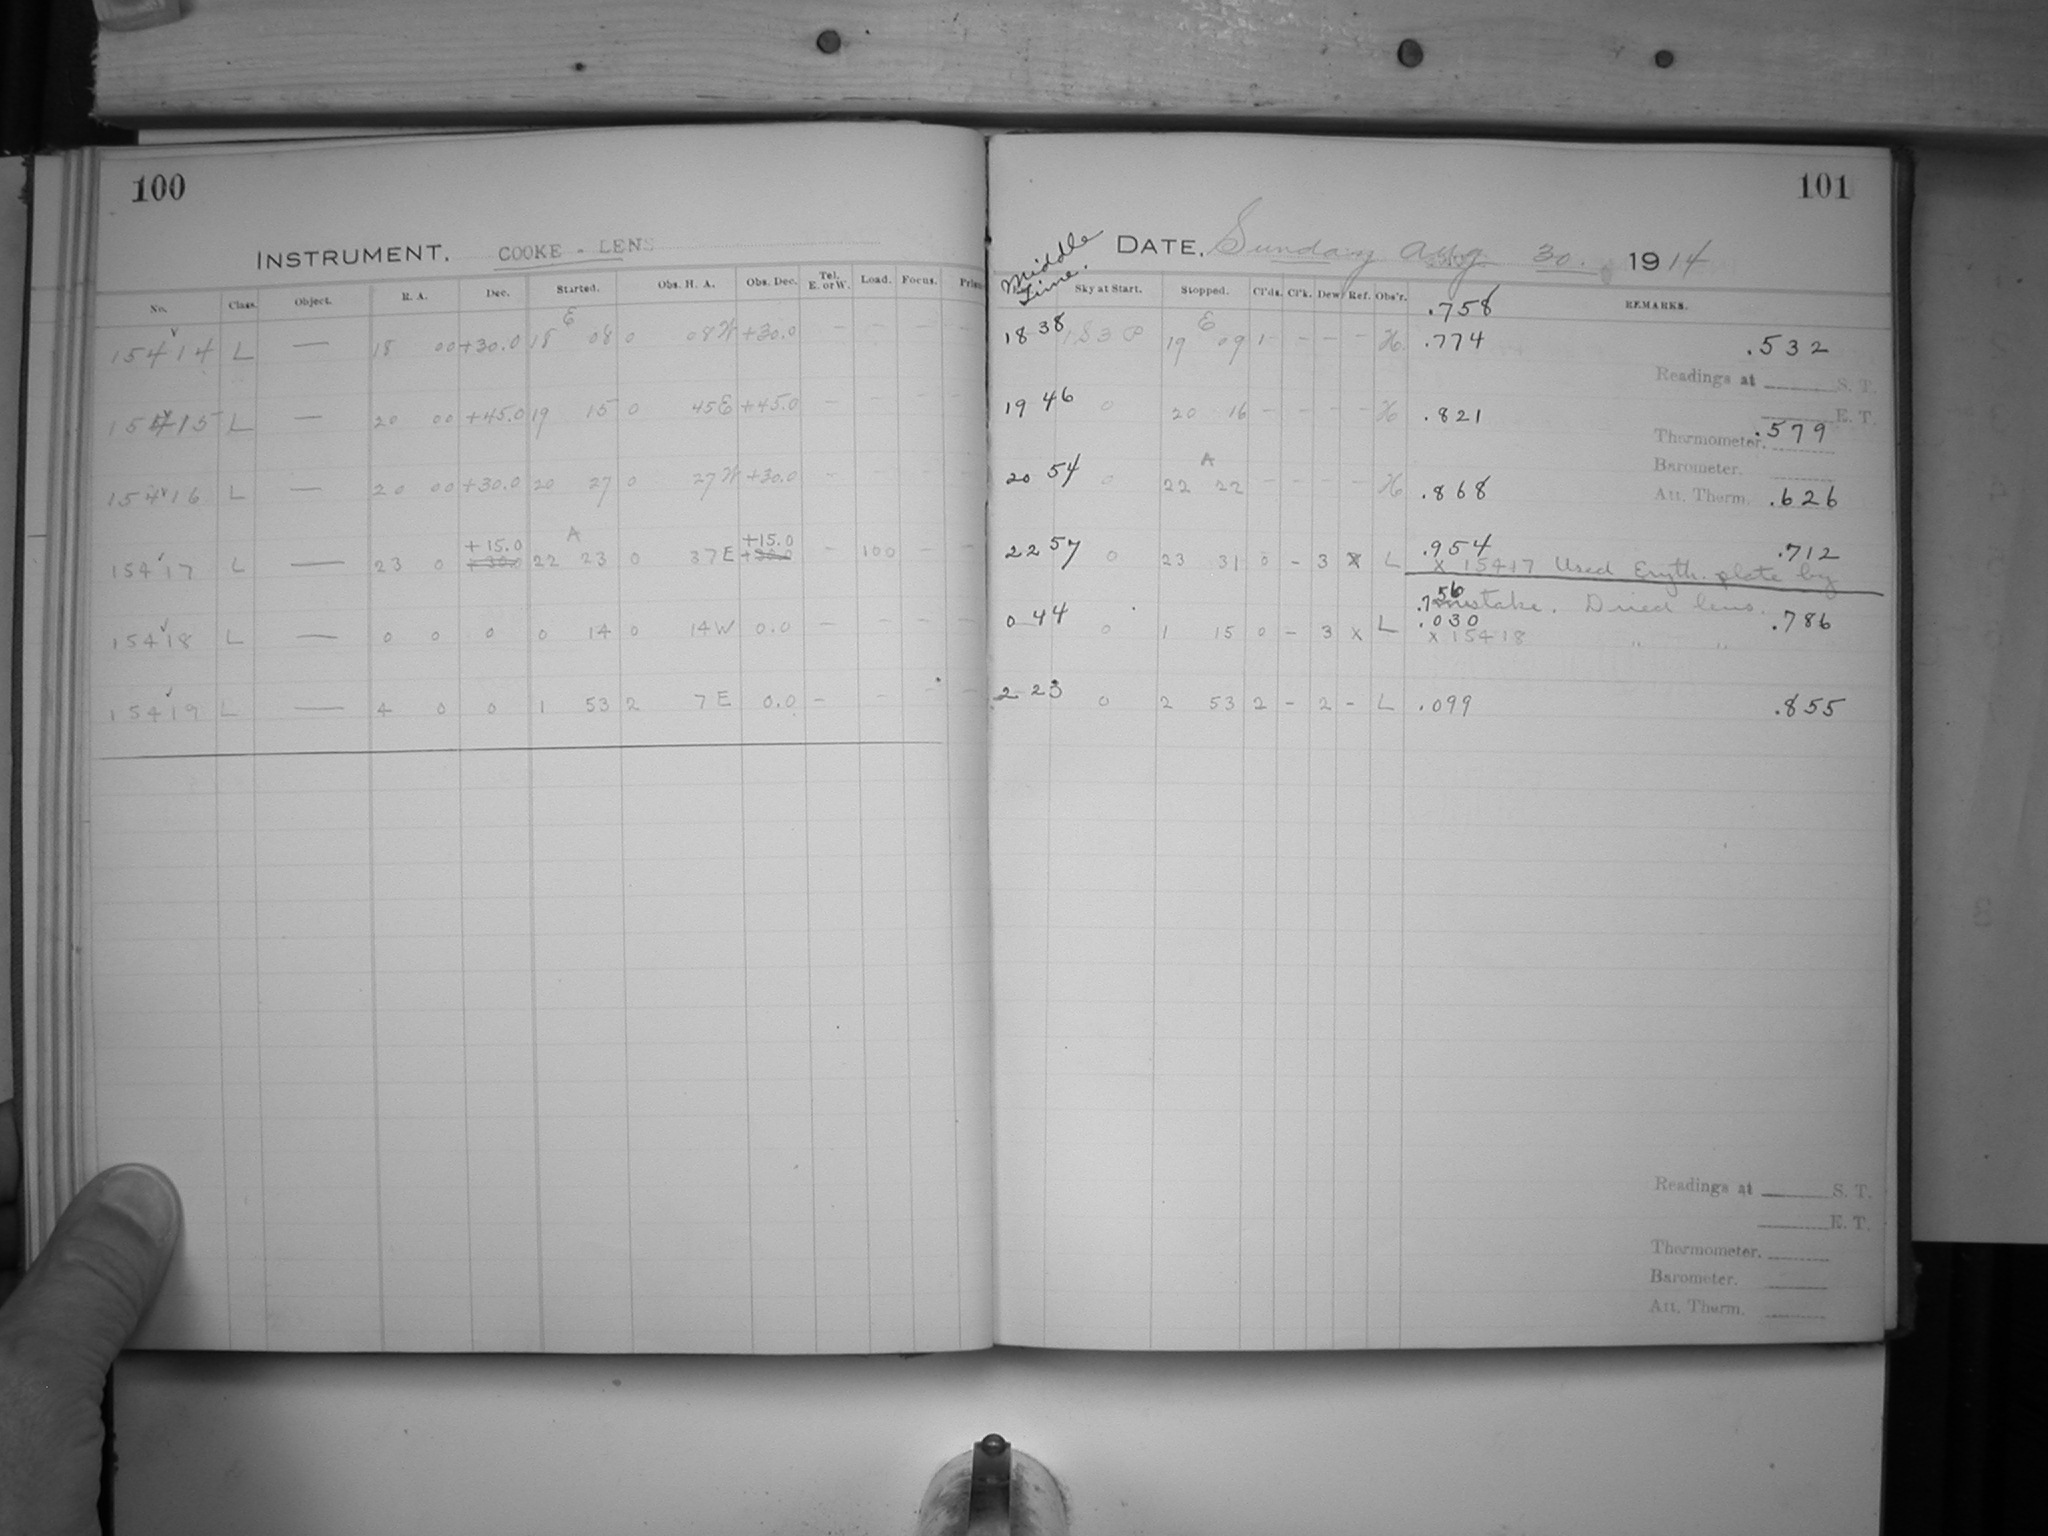 100
INSTRUMENT. COOKE - LENS
No. Class. Object. R. A. Dec. Started. Obs. H. A. Obs. Dec. Tel. E. or W. Load. Focus.
15414 L — 18 00 +30.0 18 08 0 08 W +30.0 — — — —
15415 L — 20 00 +45.0 19 15 0 45 E +45.0 — — — —
15416 L — 20 00 +30.0 20 27 0 27 W +30.0 — — — —
+15.0 A +15.0
15417 L — 23 0 +30.0 22 23 0 37 E +30.0 — 100 — —
15418 L — 0 0 0 0 14 0 14 W 0.0 — — — —
15419 L — 4 0 0 1 53 2 7 E 0.0 — — — —
101
DATE, Sunday Aug 30. 1914
Middle Time. Sky at Start. Stopped. Cl'ds. Cl'k. Dew. Ref. Obs'r. REMARKS.
.758
18 38 E 19 09 1 - - - H. .774 .532
Readings at S. T.
E. T.
19 46 0 20 16 - - - - H .821
Thermometer. .579
Barometer.
A
20 54 0 22 22 - - - - H .868
Att. Therm. .626
.954 .712
22 57 0 23 31 0 - 3 x L x 15417 Used Eryth. plate by
mistake. Dried lens.
.756
0 44 0 1 15 0 - 3 x L .030 .786
x 15418 " "
2 23 0 2 53 2 - 2 - L .099 .855
Readings at S. T.
E. T.
Thermometer.
Barometer.
Att. Therm.